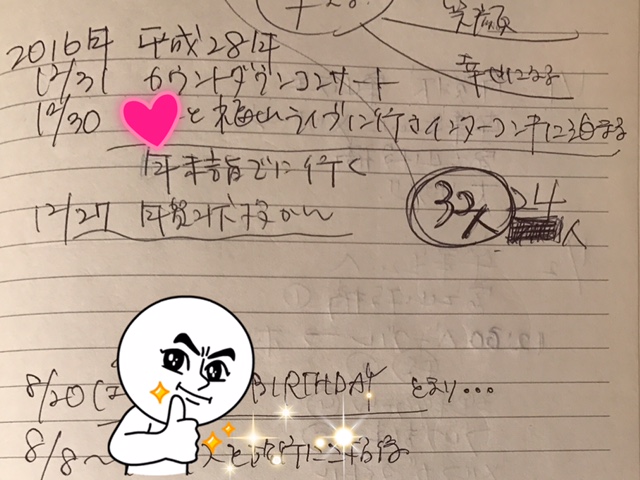 笑顔
2016年 平成28年
12/31 カウントダウンコンサート
幸せになる
12/30 と 福山ライブに行きインターコンチに泊まる
年末詣でに行く
12/27 年賀状
32人 24人
8/20 ( BIRTHDAY とまり…
8/8〜 人と旅行に